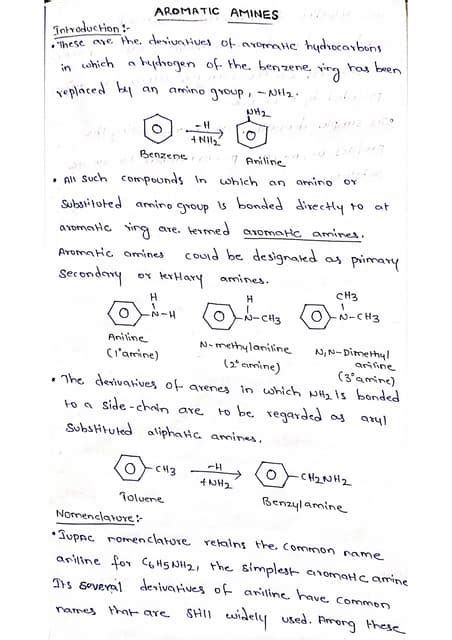 AROMATIC AMINES
Introduction :-
• These are the derivatives of aromatic hydrocarbons
in which a hydrogen of the benzene ring has been
replaced by an amino group, -NH2.
NH2
-H
+NH2
Benzene
Aniline
• All such compounds in which an amino or
substituted amino group is bonded directly to at
aromatic ring are termed aromatic amines.
Aromatic amines could be designated as primary
secondary or tertiary amines.
H H CH3
N-H N-CH3 N-CH3
Aniline N-methylaniline N,N-Dimethyl
aniline
(1° amine) (2° amine) (3° amine)
• The derivatives of arenes in which NH2 is bonded
to a side-chain are to be regarded as aryl
substituted aliphatic amines.
CH3 -H CH2NH2
+NH2
Toluene Benzylamine
Nomenclature :-
• IUPAC nomenclature retains the common name
aniline for C6H5NH2, the simplest aromatic amine
Its several derivatives of aniline have common
names that are still widely used. Among these